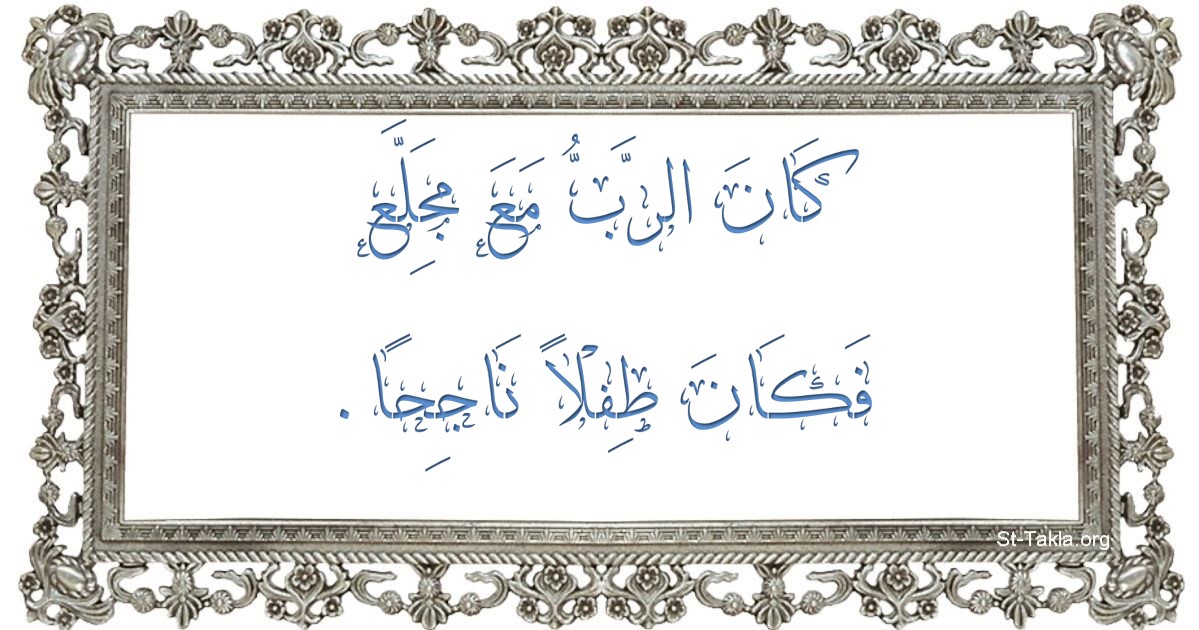 كَانَ الرَّبُّ مَعَ مَجِلَّع
فَكَانَ طِفْلاً نَاجِحاً .
St-Takla.org